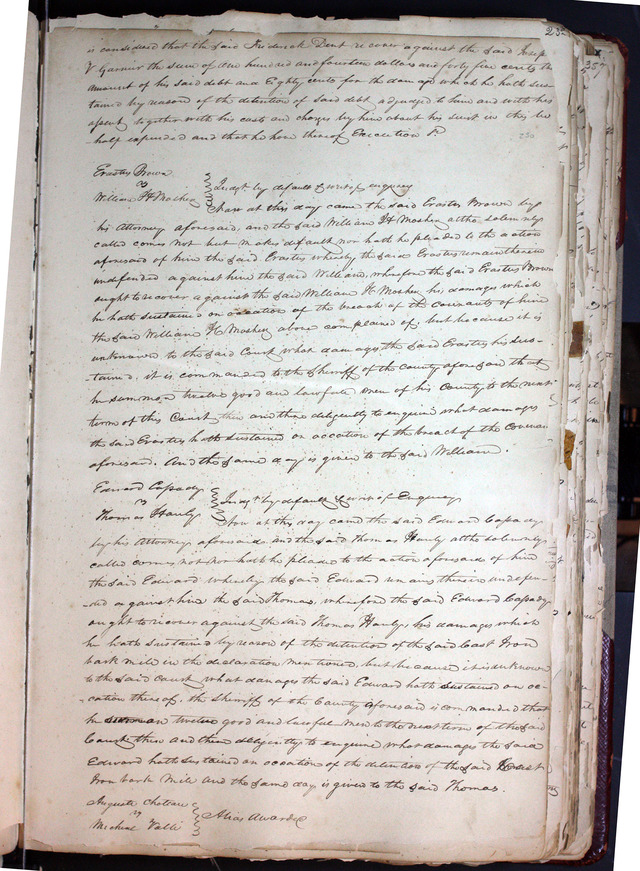 232
is considered that the said Frederick Dent recover against the said Joseph
V Garnier the sum of one hundred and fourteen dollars and forty five cents the
amount of his said debt and Eighty cents for the damage which he hath sus-
tained by reason of the detention of said debt adjudged to him and with his
assent together with his costs and charges by him about his suit in this be
half expended and that he have thereof Execution &
Erastus Brown
vs
William H Moshey
Judgt by default & writ of enquiry
Now at this day came the said Erastus Brown by
his Attorney aforesaid, and the said William H Moshey altho solemnly
called comes not but makes default nor hath he pleaded to the action
aforesaid of him the said Erastus whereby the said Erastus remains therein
undefended against him the said William, wherefore the said Erastus Brown
ought to recover against the said William H Moshey his damages which
he hath sustained on occation of the breach of the Covenants of him
the said William H Moshey above complained of, but because it is
unknown to the said Court what damages the said Erastus his sus-
tained, it is commanded to the Sherriff of the county aforesaid that
he summon twelve good and lawful men of his County to the next
term of this Court then and there diligently to enquire what damages
the said Erastus hath sustained on occation of the breach of the Covenan
aforesaid. And the same day is given to the said William.
Edward Capady
vs
Thomas Hanly
Judgt by default & writ of Enquiry
Now at this day came the said Edward Capady
by his Attorney aforesaid and the said Thomas Hanly altho solemnly
called comes not nor hath he pleaded to the action aforesaid of him
the said Edward whereby the said Edward remains therein undefen-
-ded against him the said Thomas, wherefore the said Edward Capady
ought to recover against the said Thomas Hanly, his damages which
he hath sustained by reason of the detention of the said Cast Iron
bark mill in the declaration mentioned, but because it is unknown
to the said court what damages the said Edward hath sustained on oc-
cation thereof, the Sherriff of the County aforesaid is commanded that
he summon twelve good and lawful men to the next term of the said
Court then and there diligently to enquire what damages the said
Edward hath sustained on occation of the detention of the said Cast
Iron bark Mill and the same day is given to the said Thomas.
Auguste Choteau
vs
Micheal Valli
Alias Awarded